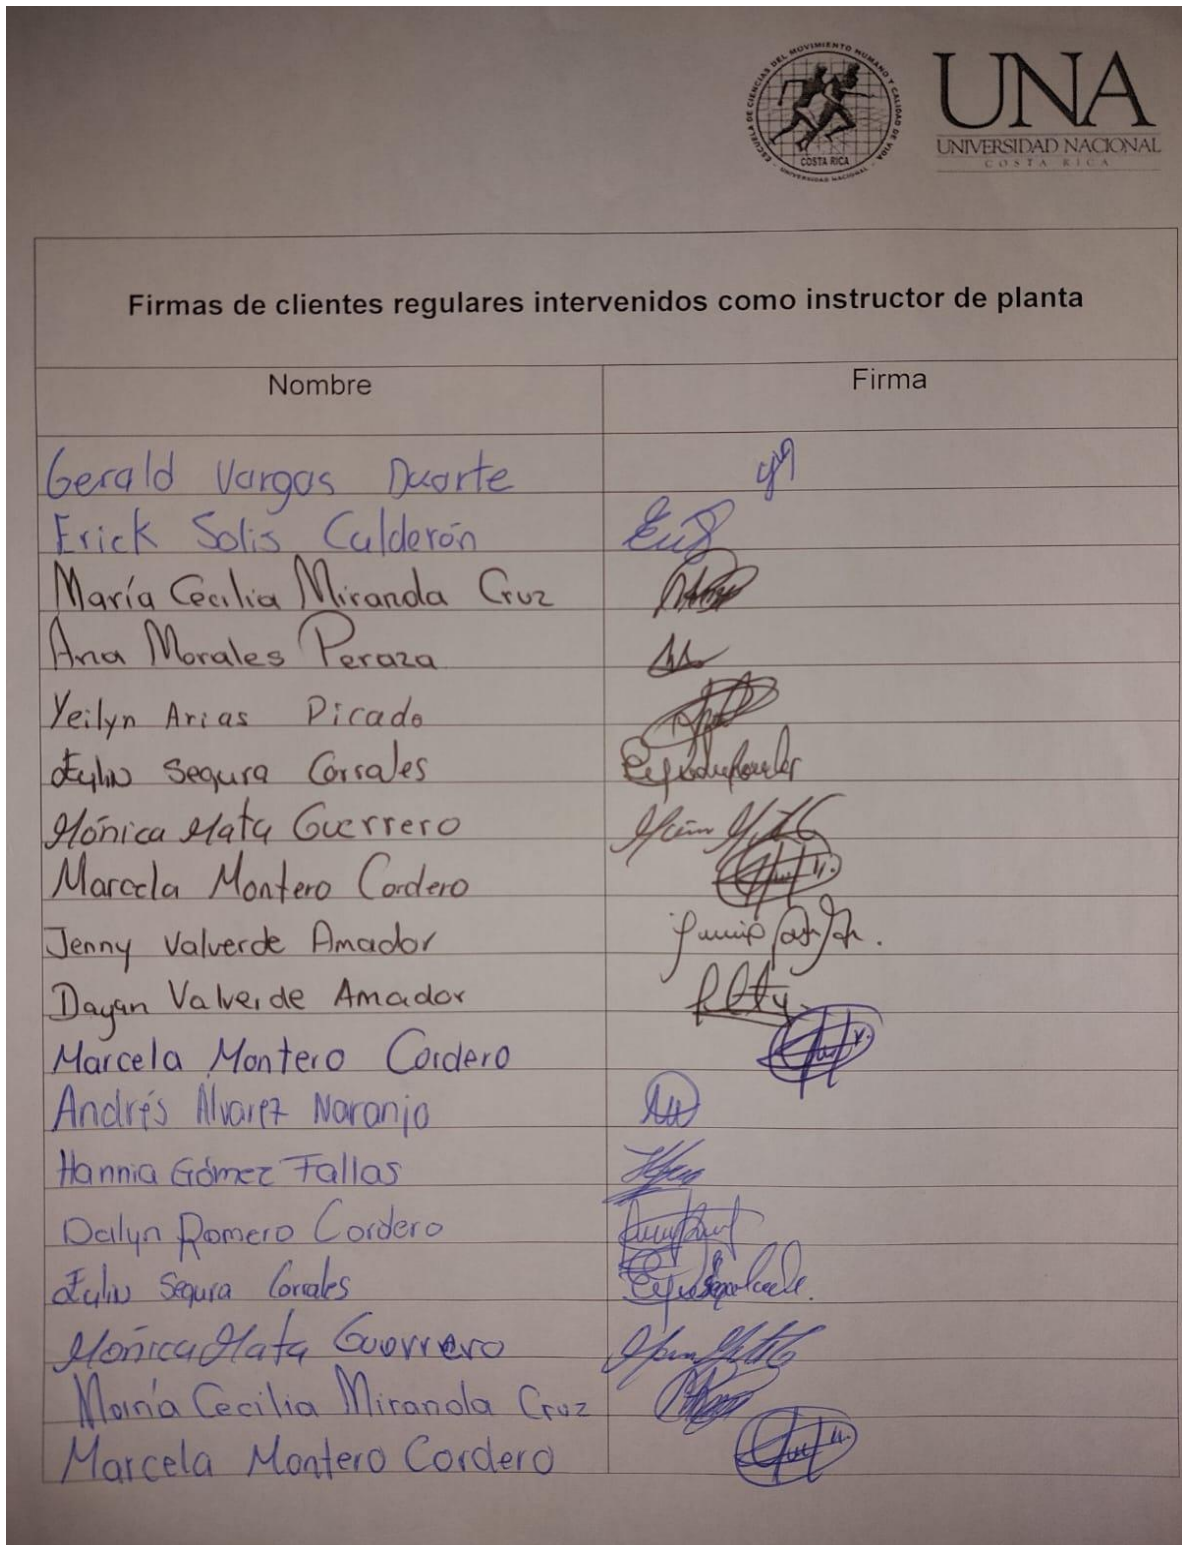 ESCUELA DE CIENCIAS DEL MOVIMIENTO HUMANO Y CALIDAD DE VIDA
COSTA RICA
UNIVERSIDAD NACIONAL
UNA
UNIVERSIDAD NACIONAL
COSTA RICA
Firmas de clientes regulares intervenidos como instructor de planta
Nombre Firma
Gerald Vargas Duarte
Erick Solis Calderón
María Cecilia Miranda Cruz
Ana Morales Peraza
Yeilyn Arias Picado
Segura Corrales
Mónica Mata Guerrero
Marcela Montero Cordero
Jenny Valverde Amador
Dayan Valverde Amador
Marcela Montero Cordero
Andrés Álvarez Naranjo
Hannia Gómez Fallas
Dailyn Romero Cordero
Segura Corrales
Mónica Mata Guerrero
María Cecilia Miranda Cruz
Marcela Montero Cordero